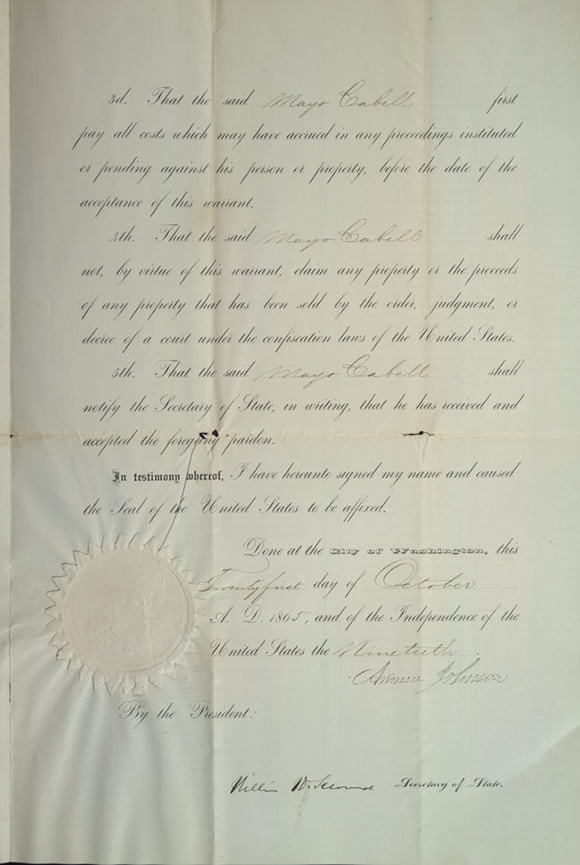 3d. That the said Mayo Cabell first
pay all costs which may have accrued in any proceedings instituted
or pending against his person or property, before the date of the
acceptance of this warrant.
4th. That the said Mayo Cabell shall
not, by virtue of this warrant, claim any property or the proceeds
of any property that has been sold by the order, judgment, or
decree of a court under the confiscation laws of the United States.
5th. That the said Mayo Cabell shall
notify the Secretary of State, in writing, that he has received and
accepted the foregoing pardon.
In testimony whereof, I have hereunto signed my name and caused
the Seal of the United States to be affixed.
Done at the City of Washington, this
Twenty first day of October
A. D. 1865, and of the Independence of the
United States the Ninetieth.
Andrew Johnson
By the President:
William H. Seward Secretary of State.